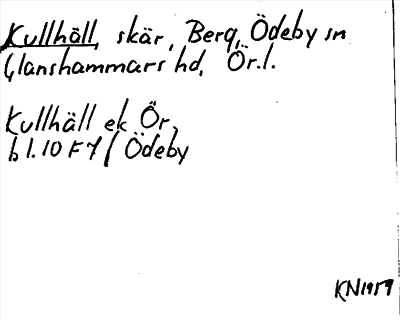 Kullhäll, skär, Berg, Ödeby sn
Glanshammars hd, Ör. l.
Kullhäll ek Ör,
bl. 10 F 7 / Ödeby
KN 1959